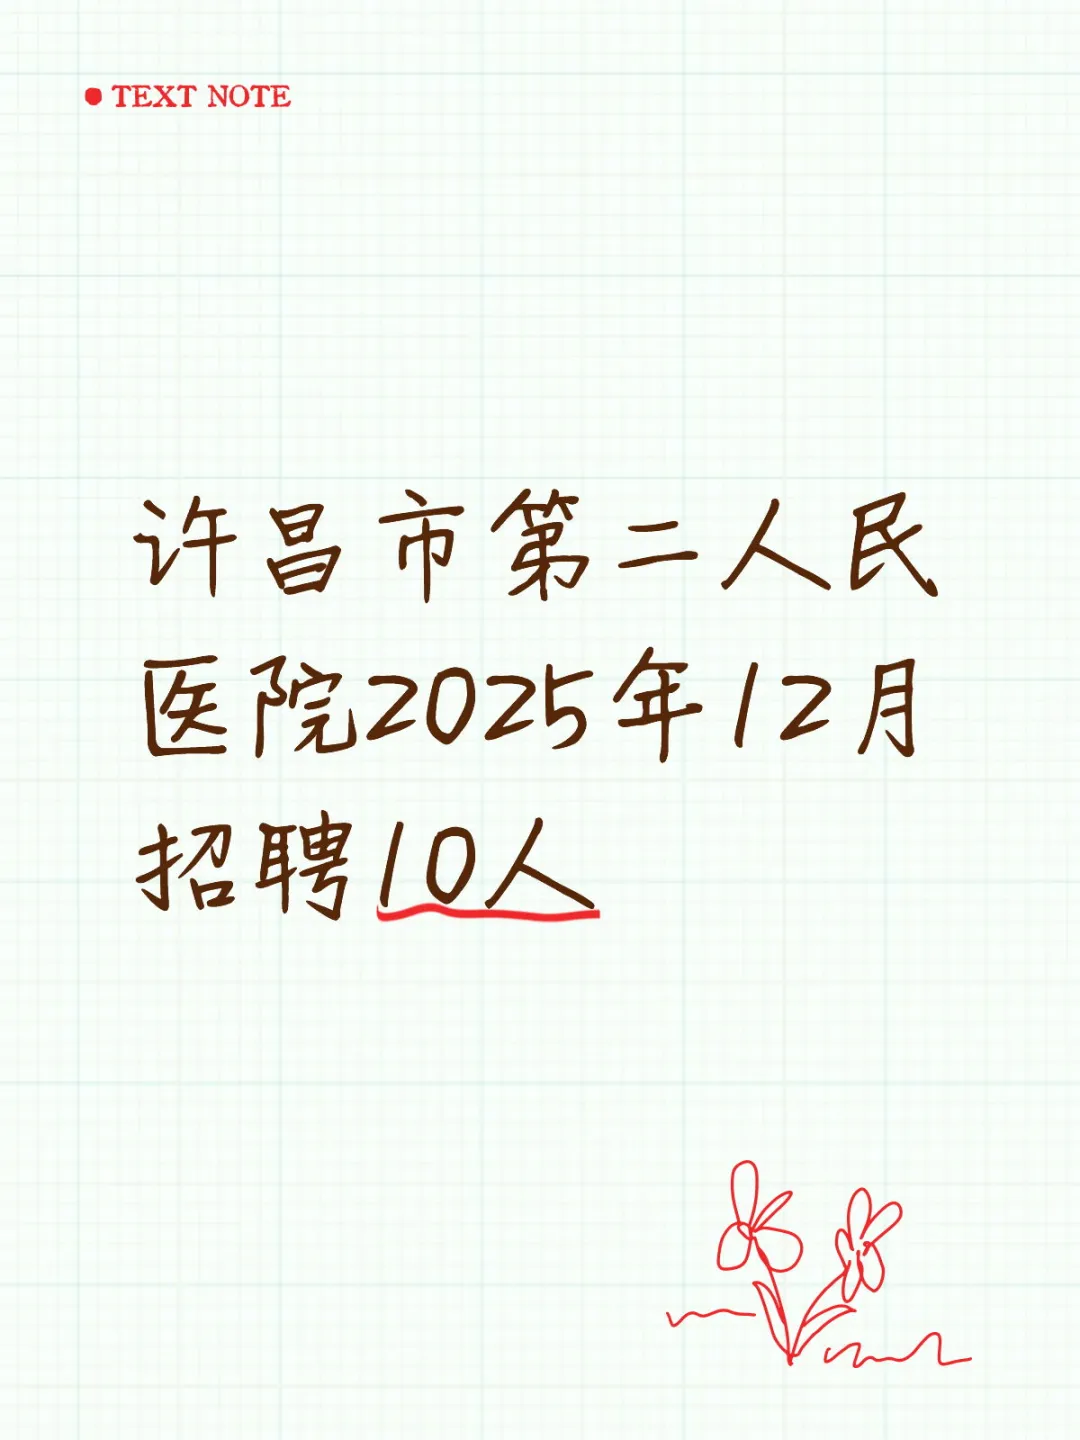 TEXT NOTE
许昌市第二人民
医院2025年12月
招聘10人